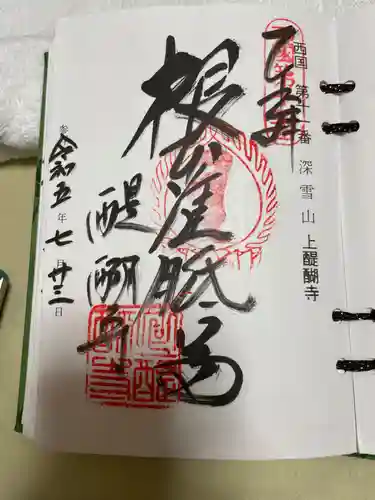 西国 第十一番 深雪山 上醍醐寺
根本准胝尊
醍醐寺
参 令和五年七月廿三日